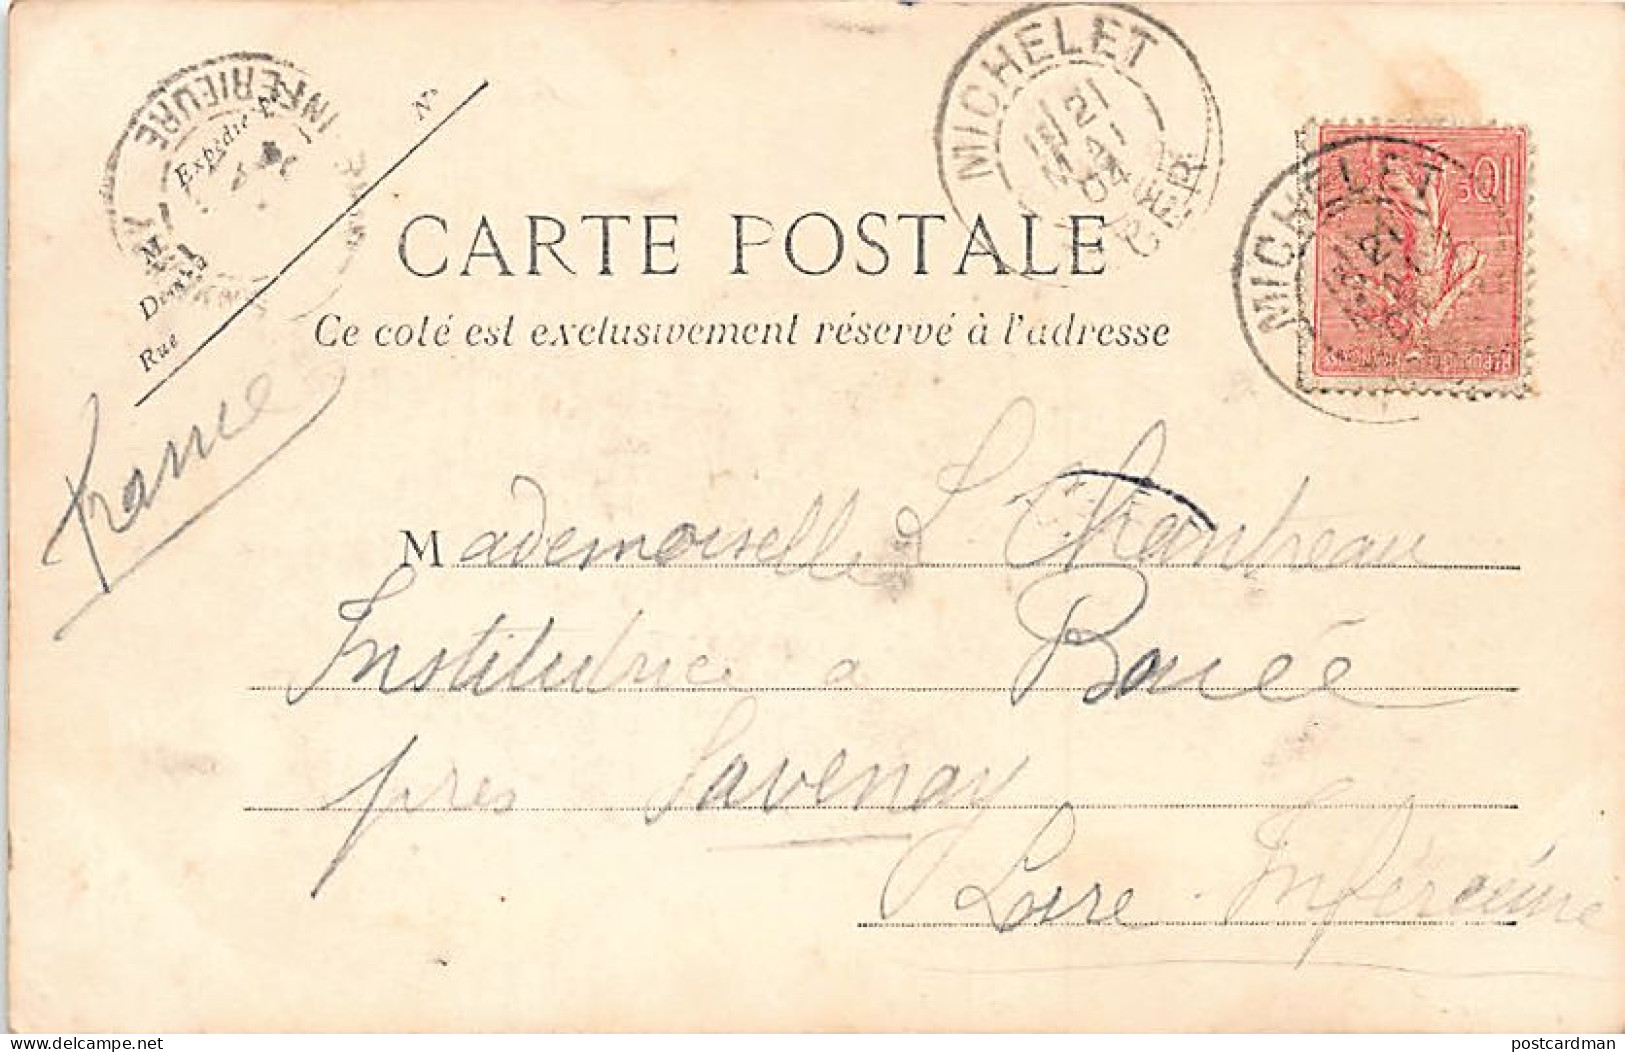 INFERIEURE
Expédié
N°
M
Rue
MICHELET
21
MAI
04
ALGER
MICHELET
21
10c
CARTE POSTALE
Ce coté est exclusivement réservé à l'adresse
France
Mademoiselle L. Chantreau
Institutrice à Bouée
près Savenay
Loire Inférieure
delcampe.net
postcardman